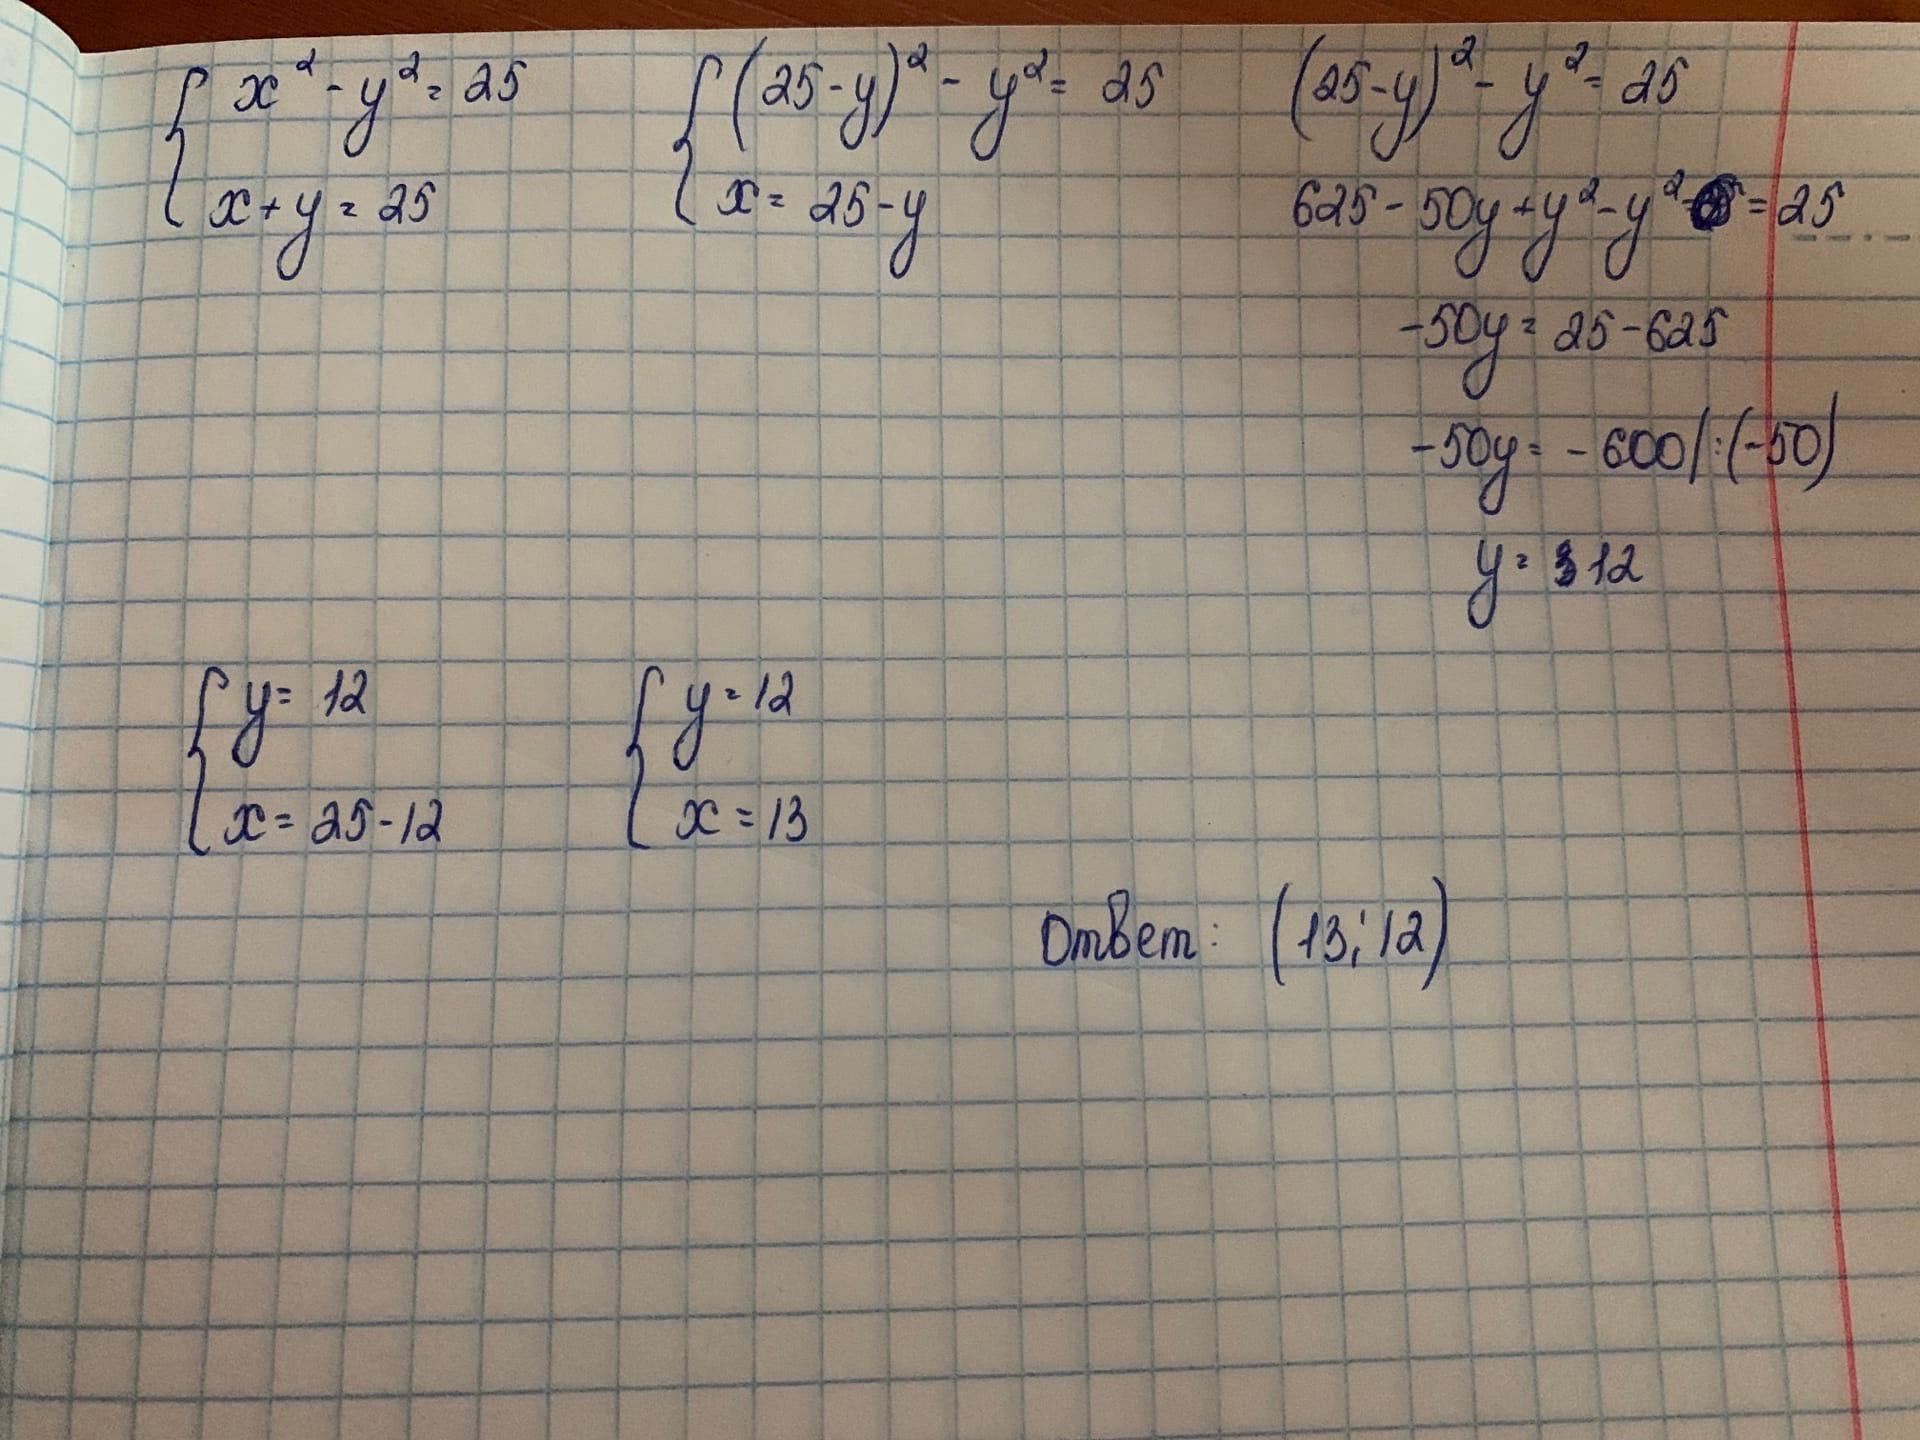 { x² - y² = 25
x + y = 25
{ (25-y)² - y² = 25
x = 25-y
(25-y)² - y² = 25
625 - 50y + y² - y² = 25
-50y = 25 - 625
-50y = -600 |:(-50)
y = 12
{ y = 12
x = 25-12
{ y = 12
x = 13
Ответ: (13; 12)